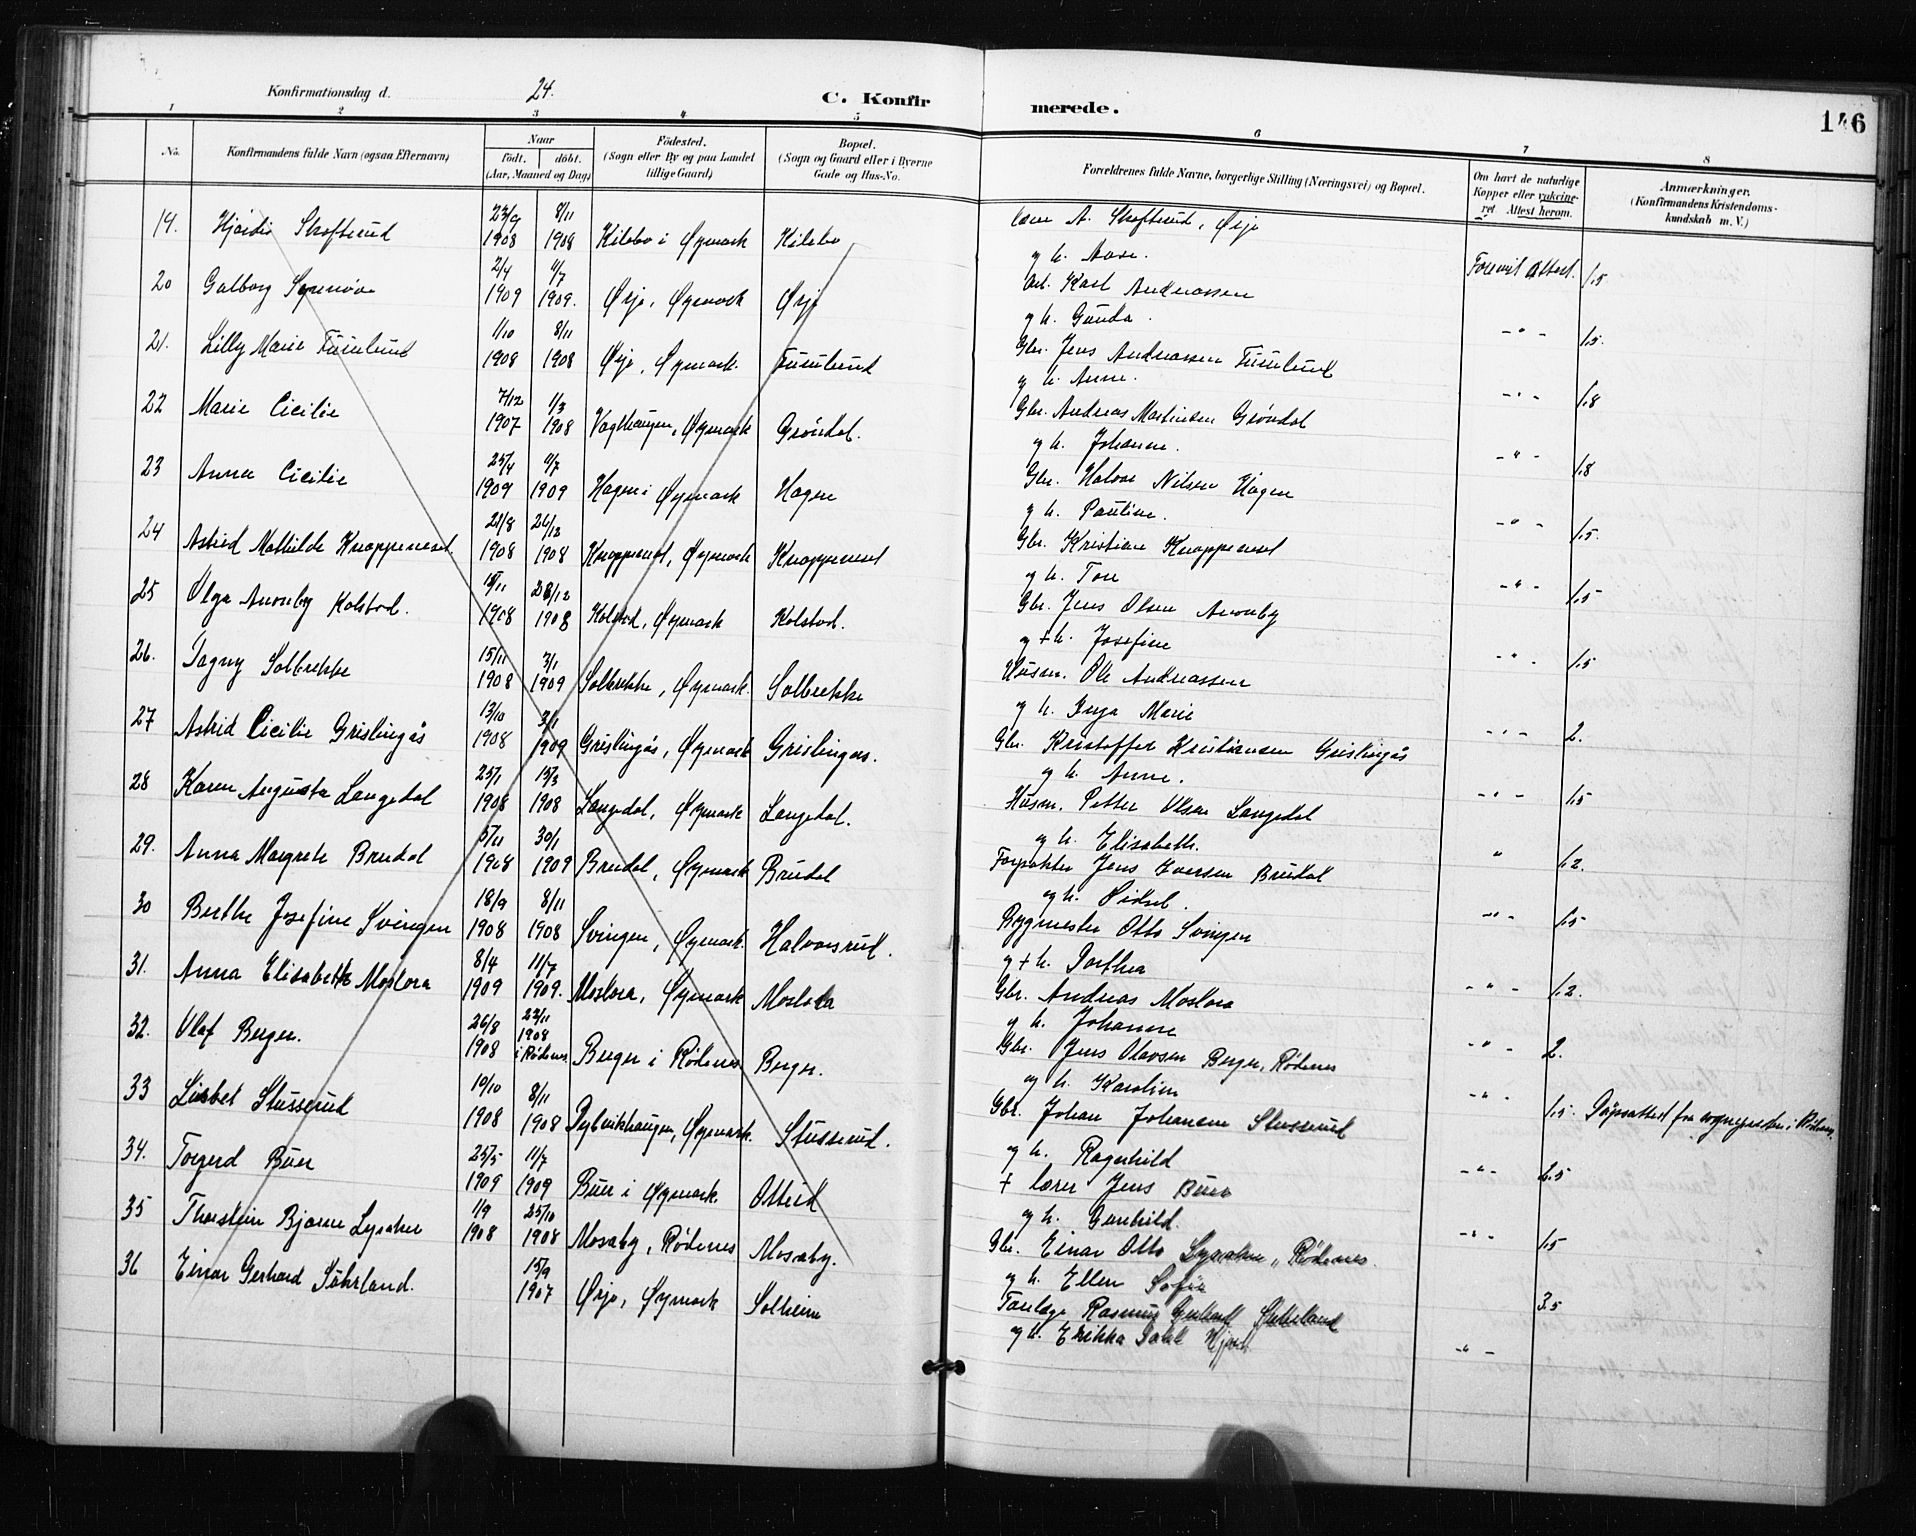 Konfirmationsdag d. 24.
C. Konfirmerede.
146
1 2 3 4 5 6 7 8
No.
Konfirmandens fulde Navn (ogsaa Efternavn)
Naar
født. døbt.
(Aar, Maaned og Dag)
Fødested.
(Sogn eller By og paa Landet
tillige Gaard)
Bopæl.
(Sogn og Gaard eller i Byerne
Gade og Hus-No.
Forældrenes fulde Navne, borgerlige Stilling (Næringsvei) og Bopæl.
Om havt de naturlige
Kopper eller vakcine-
ret Attest herom.
Anmærkninger.
(Konfirmandens Kristendoms-
kundskab m. V.)
19. Hjørdis Skofterud 23/9 1908 8/11 1908 Kilebo i Øymark Kilebo
A. Skofterud, Ørje
og h. Aase. Forevist Attest. 1.5
20 Galborg 2/4 1909 11/7 1909. Ørje, Øymark Ørje
Arb. Karl Andreassen
og h. Gunda. - " - 1.5.
21. Lilly Marie Fuüslund 1/10 1908 8/11 1908 Ørje, Øymark.
Gbr. Jens Andreassen
og h. Anne. - " - 1.8
22 Marie Cicilie 7/12 1907 1/3 1908 Øymark Grøndal.
Gbr. Andreas Martinsen Grøndal
og h. Johanne. - " - 1.8
23 Anna Cicilie 25/4 1909 11/7 1909 Hagen i Øymark Hagen
Gbr. Halvor Nilsen Hagen
og h. Pauline. - " - 1.5.
24 Astrid Mathilde Knappeneset 21/8 1908 26/12 1908 Knappeneset, Øymark Knappeneset
Gbr. Kristian Knappeneset
og h. Tore - " - 1.5
25 Olga Kolstad. 15/11 1908 28/12 1908 Kolstad, Øymark Kolstad.
Gbr. Jens Olsen
og + h. Josefine - " - 1.5
26. Dagny Solbrekke 15/11 1908 3/1 1909 Solbrekke, Øymark. Solbrekke
Husm. Ole Andreassen
og h. Inga Marie - " - 2.
27 Astrid Cicilie Grislingås 13/10 1908 3/1 1909 Grislingås, Øymark Grislingås.
Gbr. Kristoffer Kristiansen Grislingås
og h. Anne. - " - 1.5
28 Karen Augusta Langedal 25/1 1908 15/3 1908 Langedal, Øymark Langedal.
Husm. Petter Olsen Langedal
og h. Elisabeth. " 1.2.
29. Anna Margrete Brudal 5/11 1908 30/1 1909 Brudal, Øymark Brudal
Forpakter Jens Iversen Brudal
og h. - " - 1.5
30 Berthe Josefine Svingen 18/9 1908 8/11 1908 Svingen, Øymark. Halvorsrud.
Bygmester Otto Svingen
og + h. Dorthea - " - 1.2.
31. Anna Elisabeth Moslora 8/4 1909 11/7 1909. Moslora, Øymark Moslora
Gbr. Andreas Moslora
og h. Johanne - " - 2.
32. Olaf Berger. 26/8 1908 22/11 1908 i Rødenes Berger i Rødenes Berger.
Gbr. Jens Olavsen Berger, Rødenes
og h. Karoline - " - 1.5. Dåpsattest fra sognepresten i Rødenes.
33 Lisbet Stusserud 10/10 1908 8/11 1908 Dybvikhaugen, Øymark. Stusserud.
Gbr. Johan Johansen Stusserud
og h. Ragnhild - " - 2.5
34. Torgerd Buer 25/5 1909 11/7 1909 Buer i Øymark. Otteid
+ lærer Jens Buer
og h. Gunhild. - " - 1.5
35 Thorstein Bjarne Lysaker 1/9 1908 25/10 1908 Mosaby, Rødenes Mosaby.
Gbr. Einar Otto Lysaker, Rødenes.
og h. Ellen Sofie 3.5
36 Einar Gerhard 15/9 1907 Ørje, Øymark Solheim
Rasmus Gerhard
og h. Erikka Dahl - " -